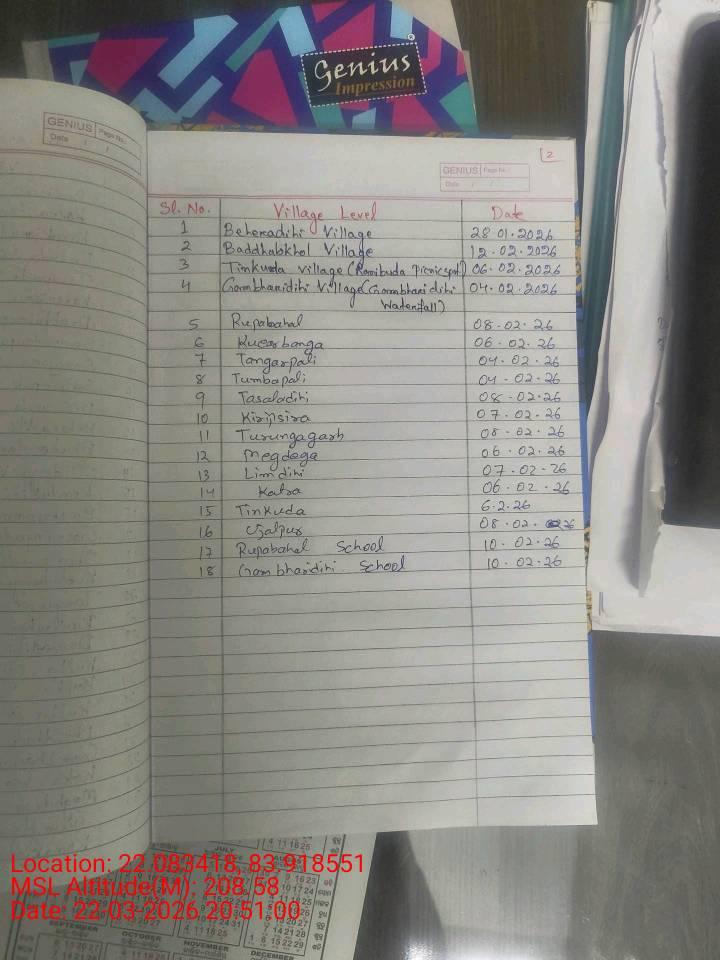 Genius
Impression
GENIUS Page No.:
Date / /
2
GENIUS Page No.:
Date / /
Sl. No. Village Level Date
1 Beheradihi Village 28.01.2026
2 Baddhabkhol Village 12.02.2026
3 Timkuda village (Ranibuda Picnic spot) 06.02.2026
4 Gambharidihi Village (Gambharidihi 04.02.2026
Waterfall)
5 Rupabahal 08.02.26
6 Kucarbanga 06.02.26
7 Tangarpali 04.02.26
8 Tumbapali 04.02.26
9 Tasaladihi 08.02.26
10 Kirijsira 07.02.26
11 Turungagarh 08.02.26
12 Megdega 06.02.26
13 Limdihi 07.02.26
14 Katra 06.02.26
15 Tinkuda 6.2.26
16 Ujalpur 08.02.26
17 Rupabahal School 10.02.26
18 Gambharidihi School 10.02.26
Location: 22.083418, 83.918551
MSL Altitude(M): 208.58
Date: 22-03-2026 20:51:00
SEPTEMBER
OCTOBER
NOVEMBER
DECEMBER